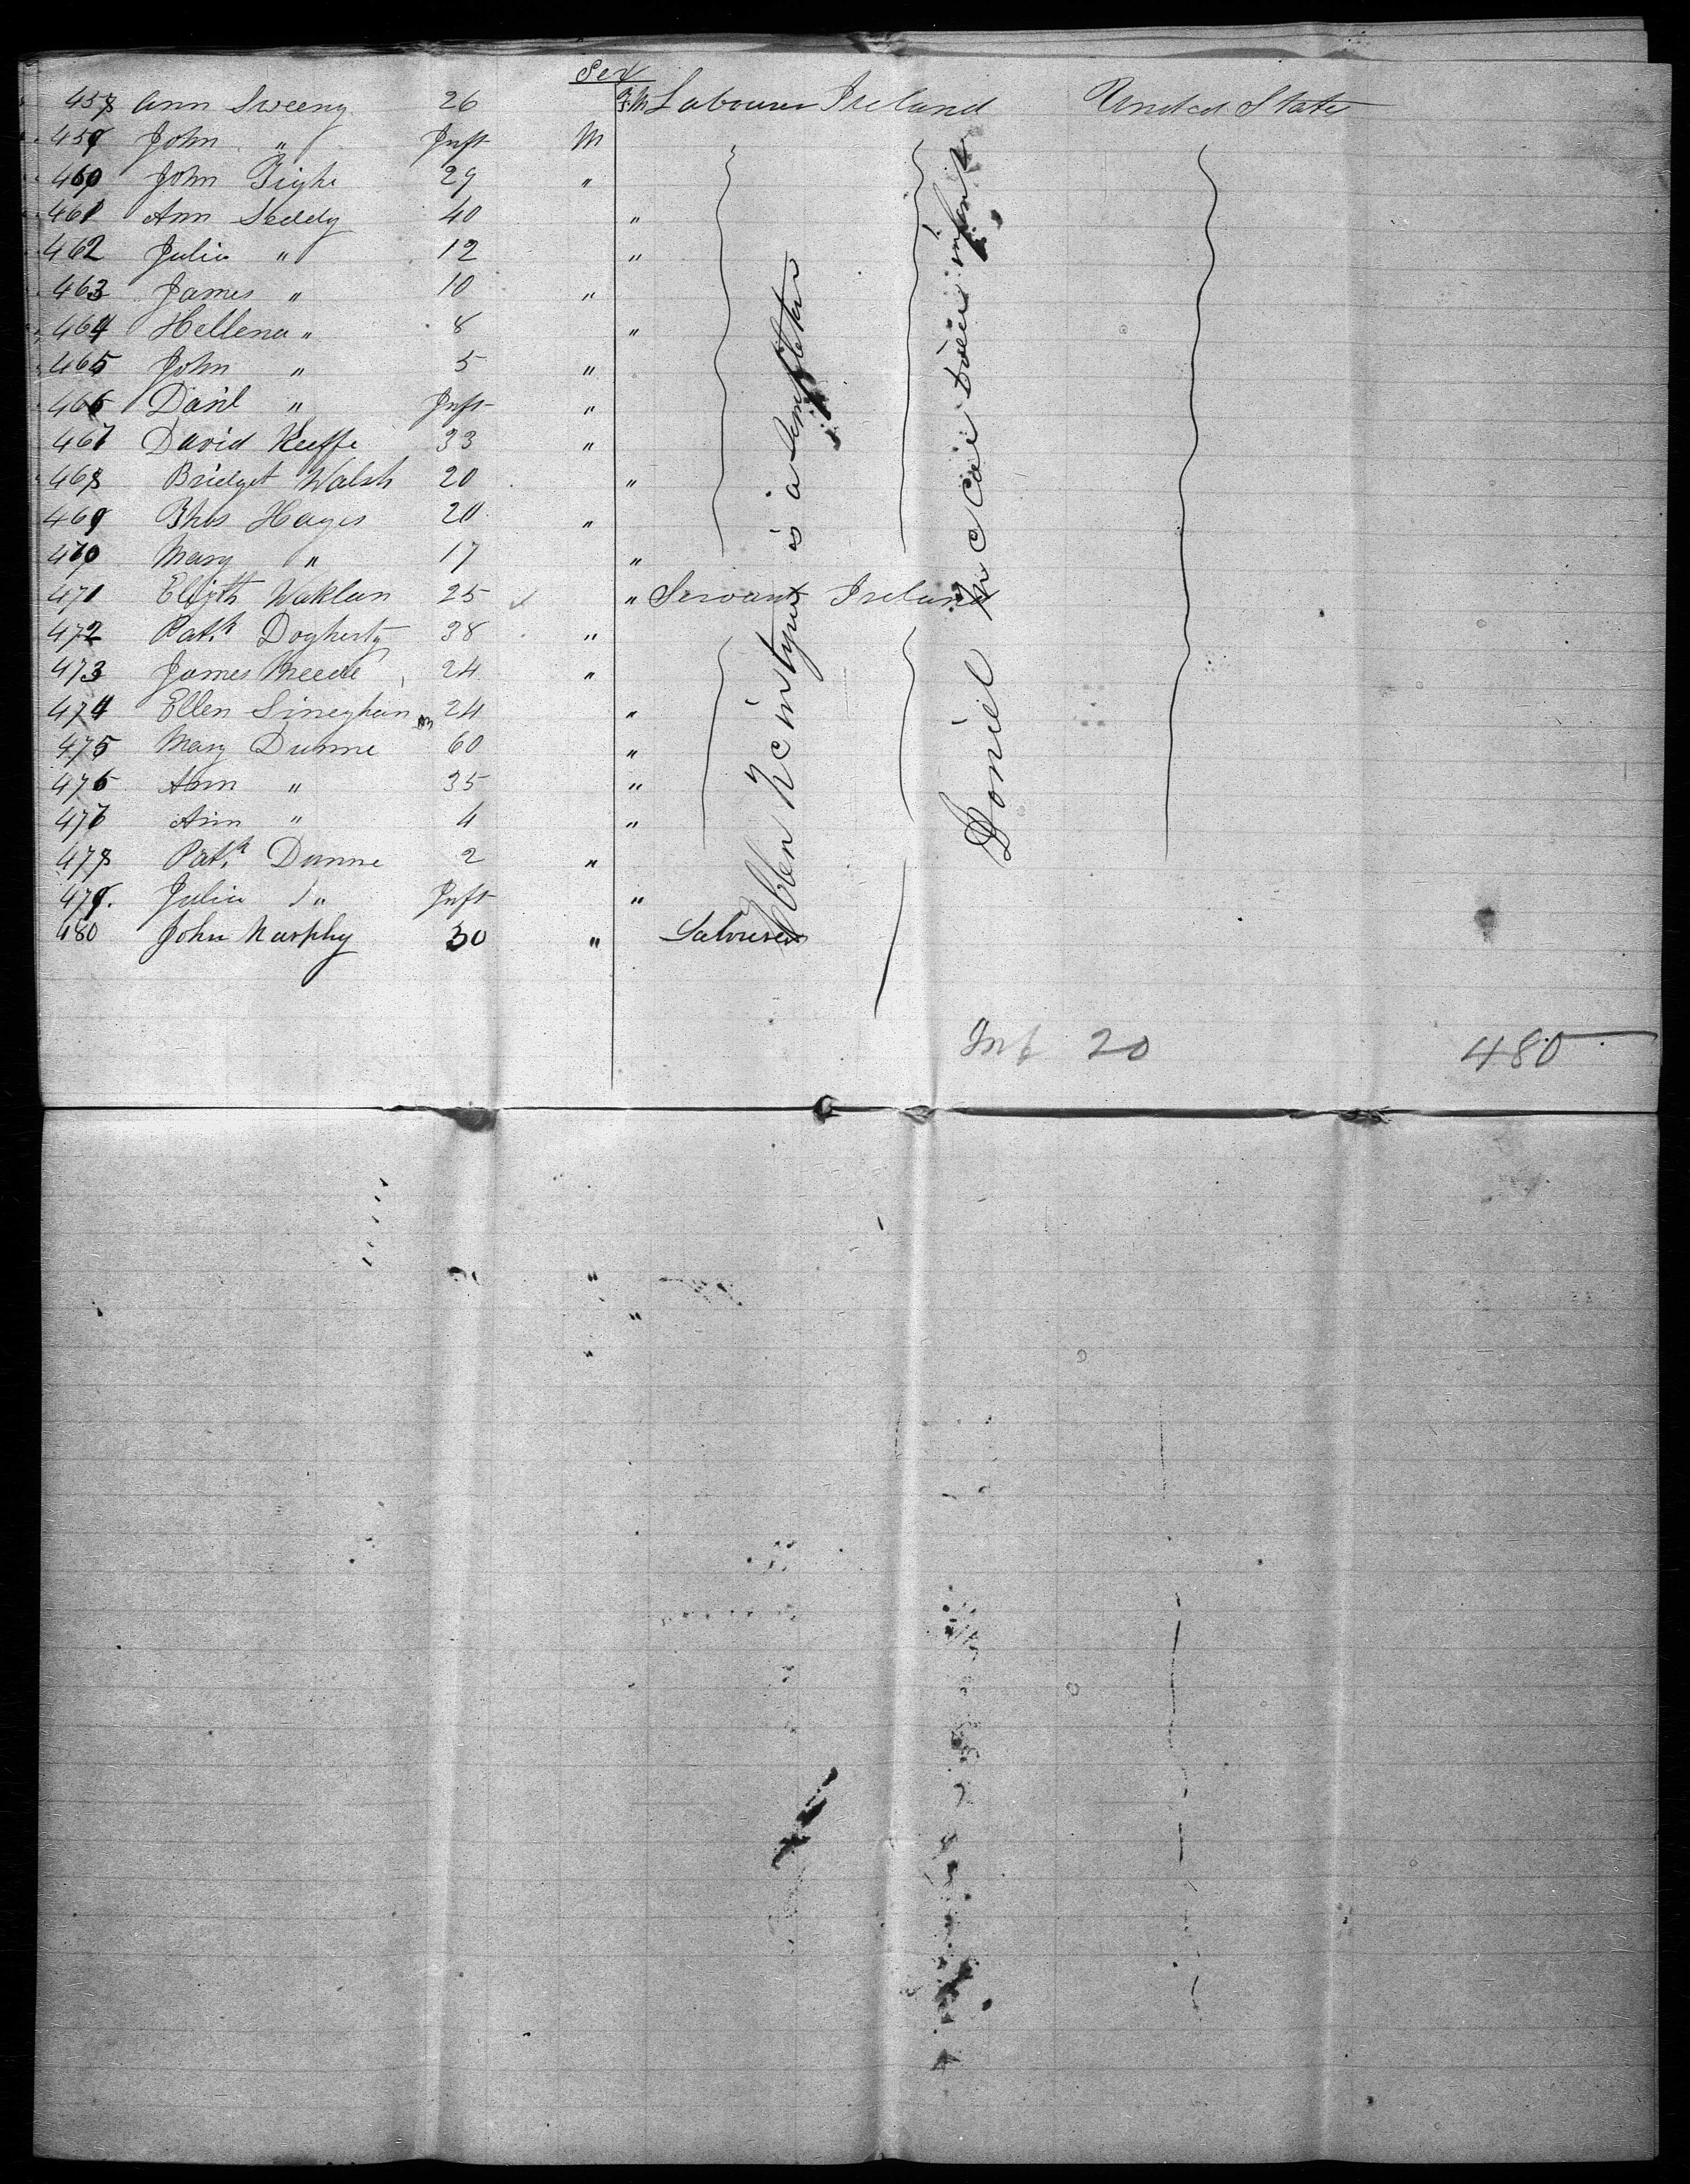 Sex
458 Ann Sweeny 26 F M Labourer Ireland United States
459 John " Inft M
460 John Tighe 29 "
461 Ann Leddy 40 "
462 Julia " 12 "
463 James " 10 "
464 Hellena " 8 "
465 John " 5 "
466 Danl " Inft "
467 David Keeffe 33 "
468 Bridget Walsh 20 "
469 Thos Hayes 20 "
470 Mary " 17 "
471 Elizth 25 " Servant Ireland
472 Patk Dogherty 38 "
473 James 24 "
474 Ellen 24 "
475 Mary Dunne 60 "
476 Ann " 35 "
477 Ann " 4 "
478 Patk Dunne 2 "
479. Julia " Inft "
480 John Murphy 30 " Labourer
Ellen McIntyre is a
Daniel infant
Inf 20 480